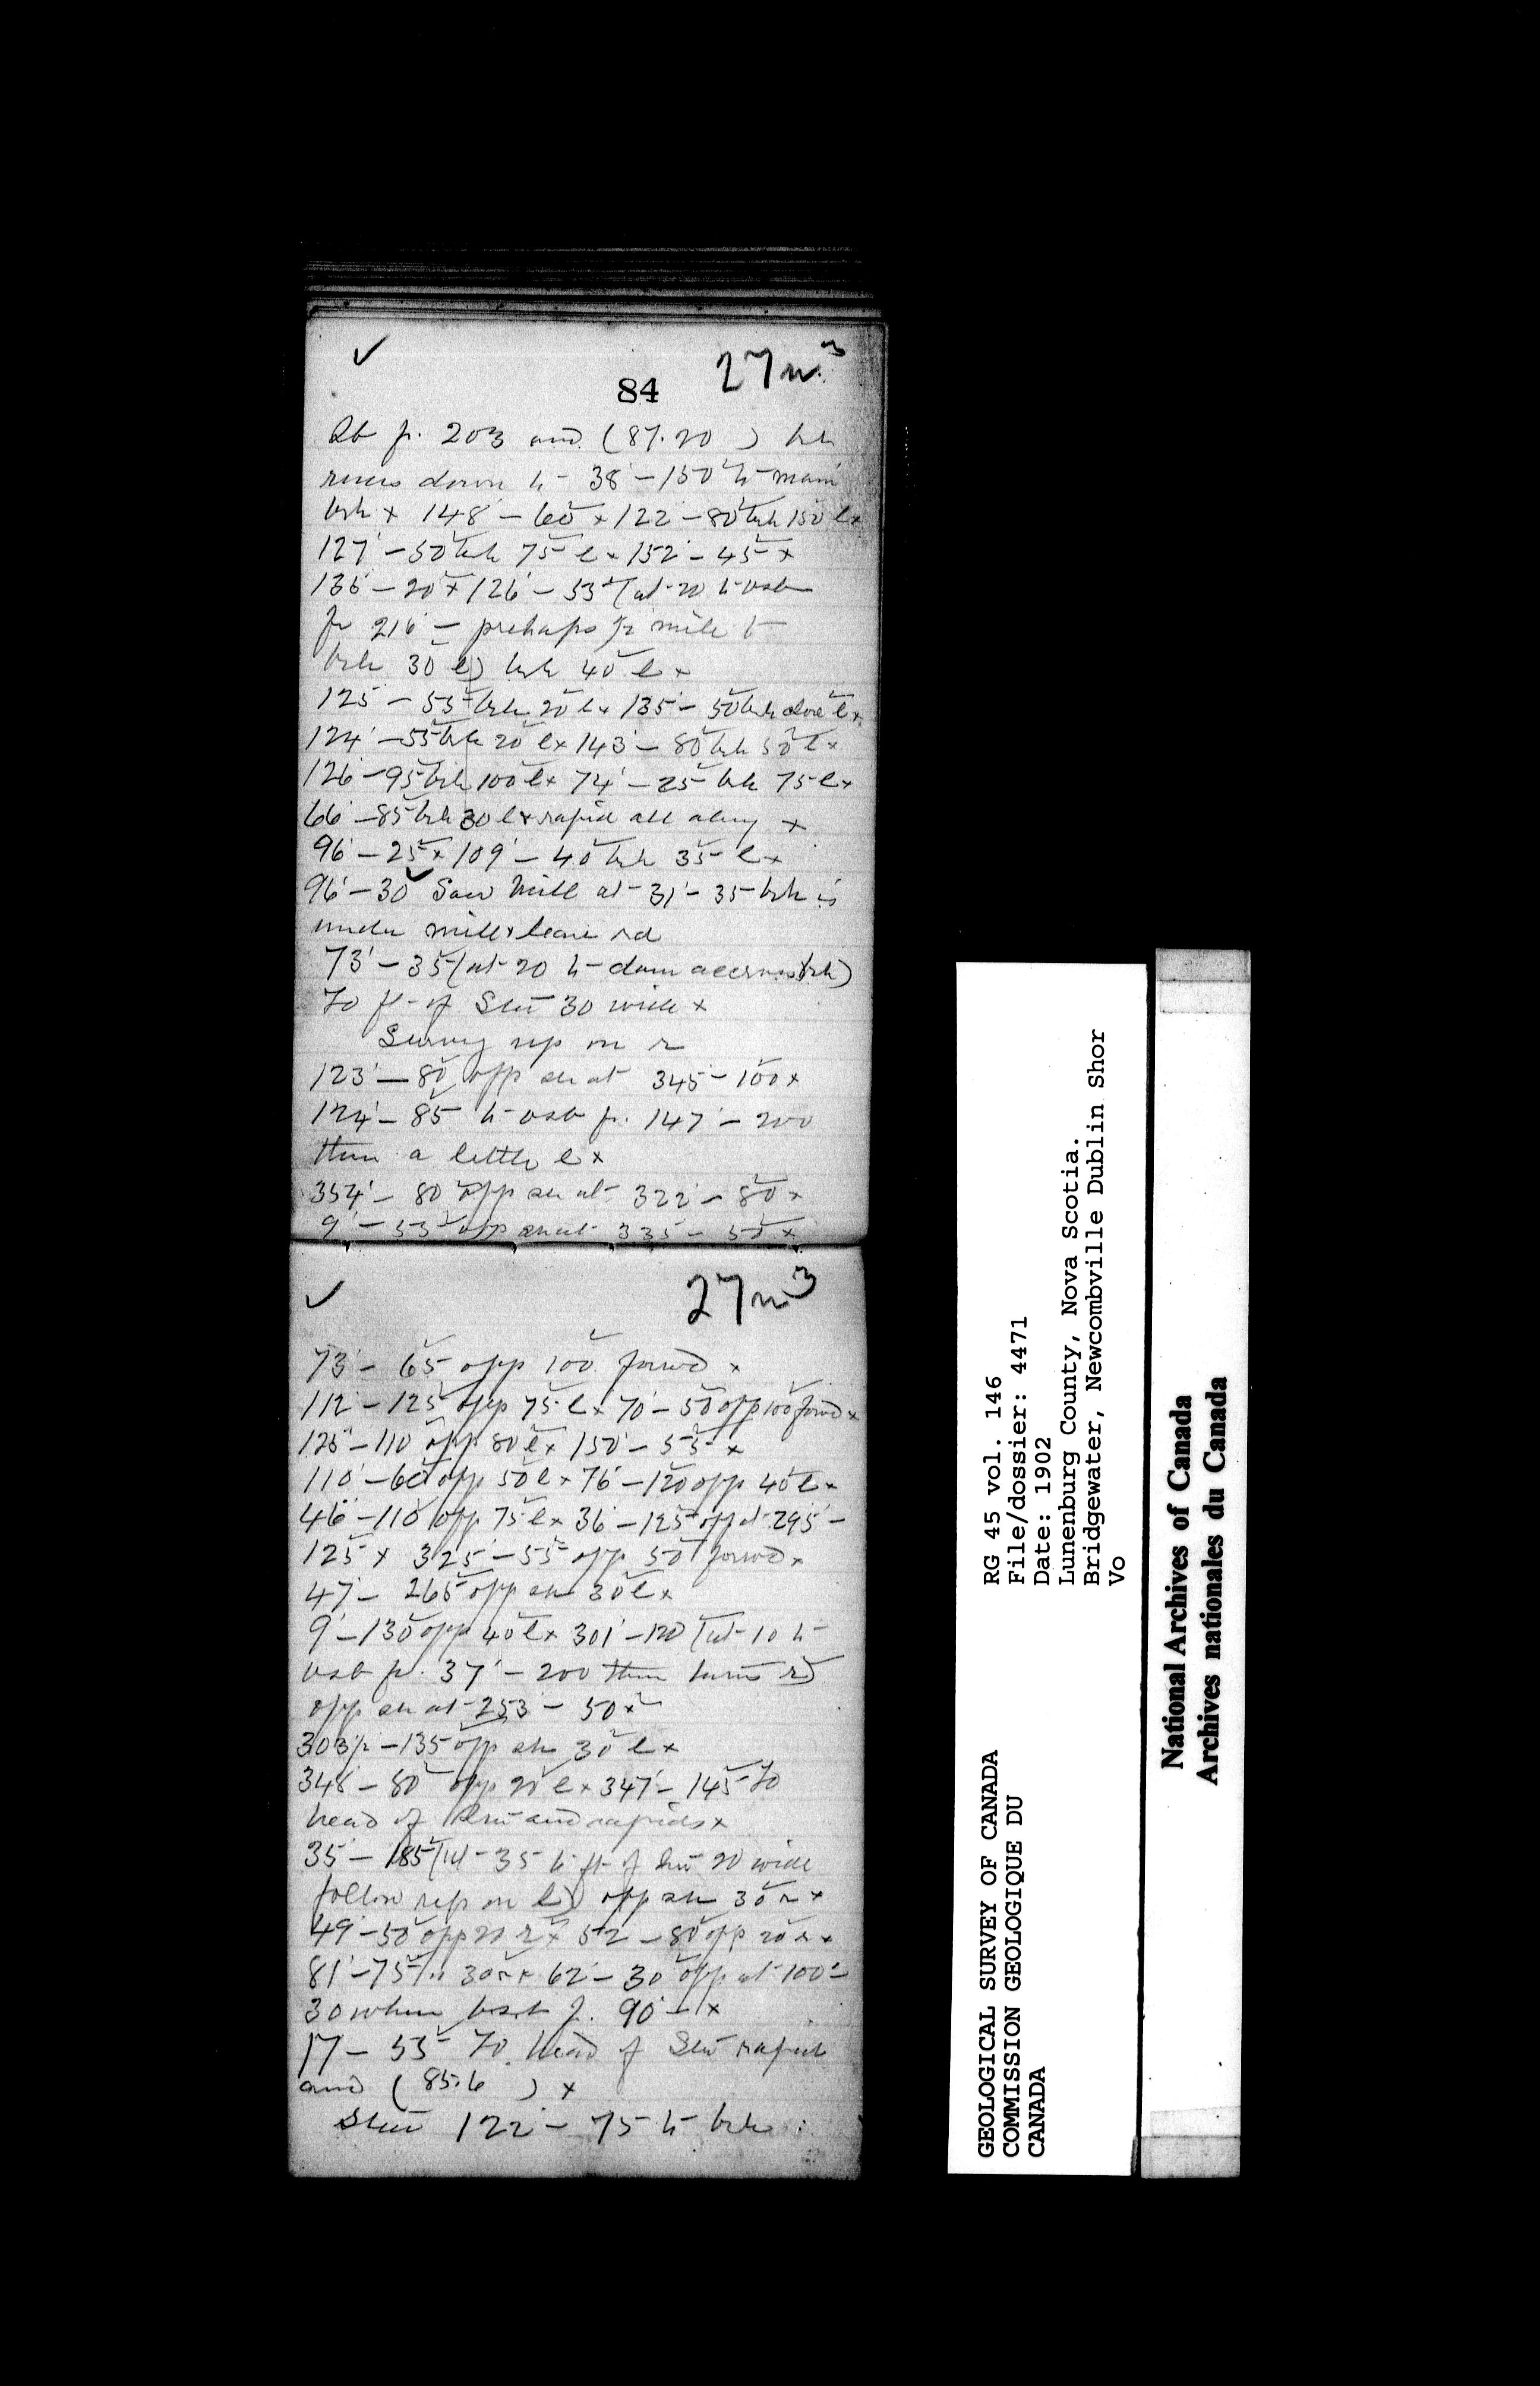 27 n.3
84
p. 203 and (87.20 ) brk
runs down to 38' - 150 to main
brk x 148' - 60 x 122' - 80 brk 150 l x
127' - 50 brk 75 l x 152' - 45 x
135' - 20 x 126' - 53 (at 20 to
fr 216' - prehaps 1/2 mile to
brk 30 l) brk 40 l x
125' - 55 brk 20 l x 135' - 50 brk close l x
124' - 55 brk 20 l x 143' - 80 brk 50 l x
126' - 95 brk 100 l x 74' - 25 brk 75 l x
66' - 85 brk 30 l x rapid all along x
96' - 25 x 109' - 40 brk 35 l x
96' - 30 Saw Mill at 31' - 35 brk is
under mill x leave rd
73' - 35 (at 20 to dam accross brk)
To ft of Stu 30 wide x
Survey up on r
123' - 80 opp sh at 345' - 100 x
124' - 85 to p. 147' - 200
then a little l x
354' - 80 opp sh at 322' - 80 x
9' - 55 opp sh at 335' - 50 x
27 n 3
73' - 65 opp 100 forwd x
112' - 125 opp 75 l x 70' - 50 opp 100 forwd x
125' - 110 opp 80 l x 150' - 55 x
110' - 60 opp 50 l x 76' - 120 opp 40 l x
46' - 110 opp 75 l x 36' - 125 opp at 295' -
125 x 325' - 55 opp 50 forwd x
47' - 265 opp sh 30 l x
9' - 130 opp 40 l x 301' - 120 (at 10 to
p. 37' - 200 then turns r)
opp sh at 253' - 50 x
303 1/2 - 135 opp sh 30 l x
348' - 80 opp 20 l x 347' - 145 To
head of Stu and rapids x
35' - 185 (at 35 to ft of Stu 20 wide
follow up on l) opp sh 30 r x
49' - 50 opp 20 r x 52' - 80 opp 20 r x
81' - 75 " 30 r x 62' - 30 opp at 100' -
30 when p. 90' - x
17' - 55 To head of Stu rapid
and (85.6 ) x
Stu 122' - 75 to brk
GEOLOGICAL SURVEY OF CANADA
COMMISSION GEOLOGIQUE DU
CANADA
RG 45 vol. 146
File/dossier: 4471
Date: 1902
Lunenburg County, Nova Scotia.
Bridgewater, Newcombville Dublin Shor
Vo
National Archives of Canada
Archives nationales du Canada